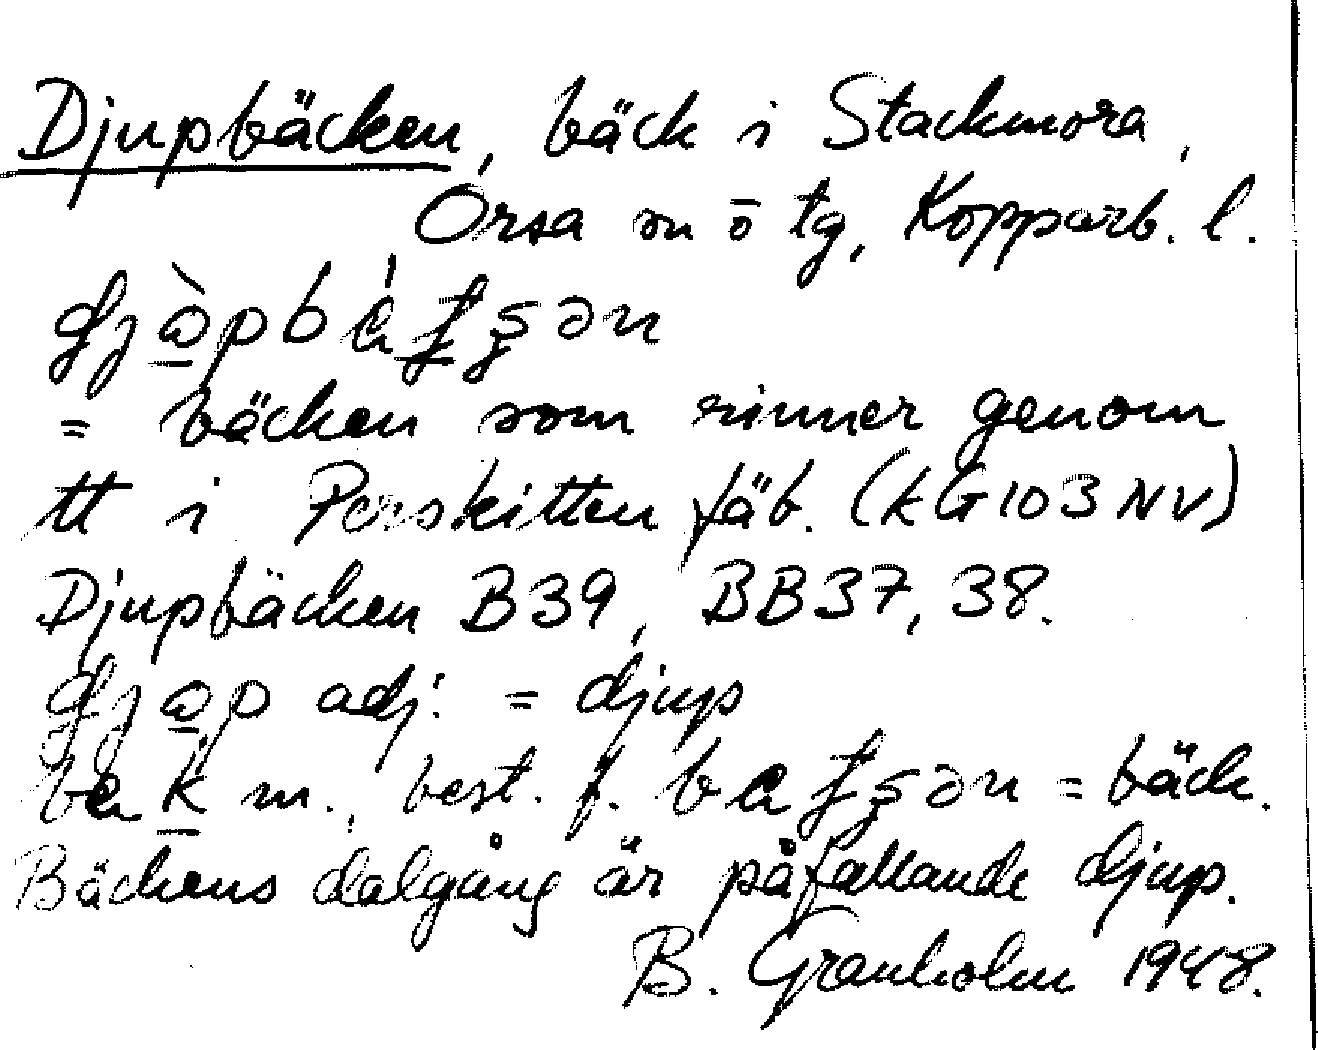 Djupbäcken, bäck i Stackmora,
Orsa sn ō tg, Kopparb. l.
= bäcken som rinner genom
tt i Perskitten fäb. (kG103NV)
Djupbäcken B39, BB37, 38.
adj. = djup
m., best. f. = bäck.
Bäckens dalgång är påfallande djup.
B. Granholm 1948.